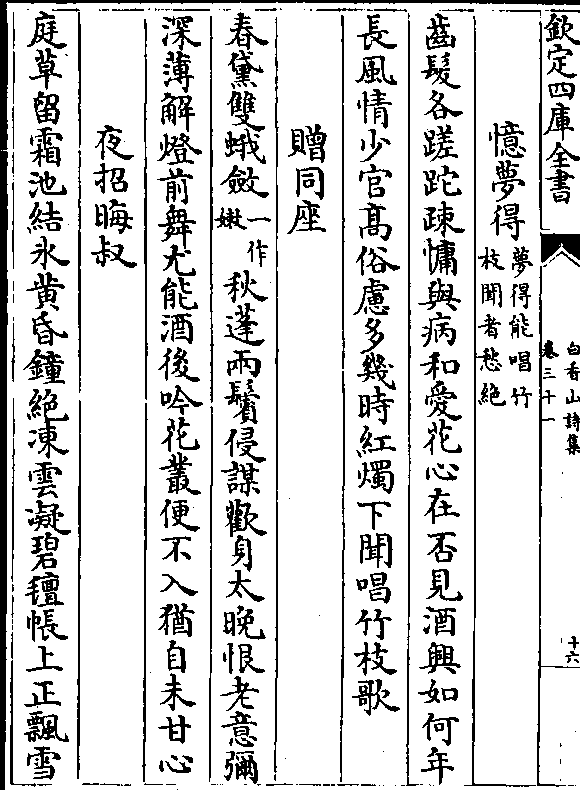 欽定四庫全書
白香山詩集
卷三十一
十六
憶夢得
夢得能唱竹
枝聞者愁絶
齒髮各蹉跎疎慵與病和愛花心在否見酒興如何年
長風情少官髙俗慮多幾時紅燭下聞唱竹枝歌
贈同座
春黛雙蛾斂一作嫩秋蓬兩鬢侵謀歡身太晚恨老意彌
深薄解燈前舞尤能酒後吟花叢便不入猶自未甘心
夜招晦叔
庭草留霜池結氷黄昏鐘絶凍雲凝碧氊帳上正飄雪